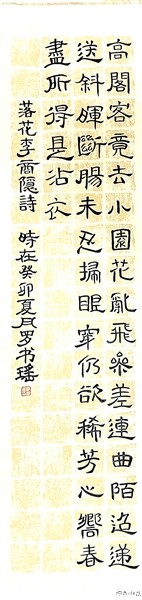 高閣客竟去小園花亂飛參差連曲陌迢遞
送斜暉斷腸未忍掃眼穿仍欲稀芳心嚮春
盡所得是沾衣
落花李商隱詩 時在癸卯夏月罗书瑶